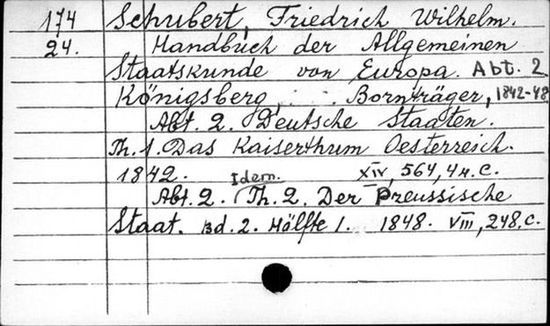 174 Schubert, Friedrich Wilhelm.
24. Handbuch der Allgemeinen
Staatskunde von Europa. Abt. 2
Königsberg, Bornträger, 1842-48
Abt. 2. Deutsche Staaten.
Th. 1. Das Kaiserthum Oesterreich.
1842. XIV 564, 4 н. с.
Idem.
Abt. 2. Th. 2. Der Preussische
Staat. Bd. 2. Hälfte 1. 1848. VIII, 248, c.